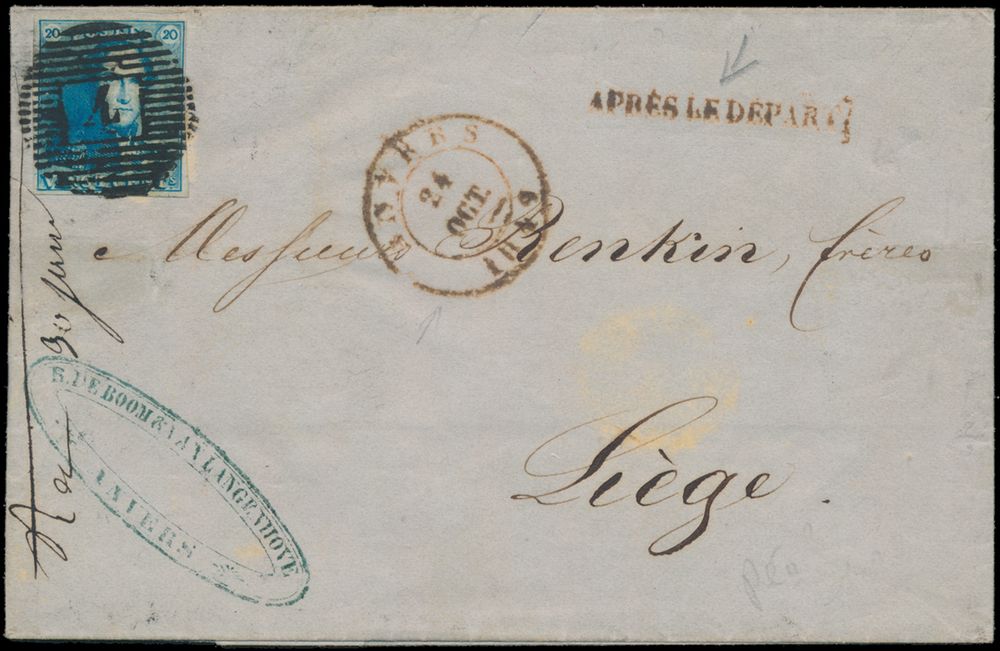 20 POSTES 20
4
VINGT CENTS
APRÈS LE DÉPART
ANVERS
24
OCT.
1849
Messieurs Renkin, frères
Liège.
DE BOOM & VAN LANGENHOVE
ANVERS